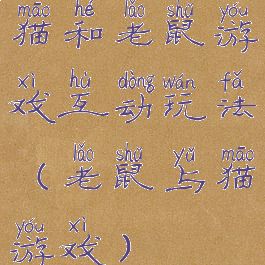 māo hé lǎo shǔ yóu
猫和老鼠游
xì hù dòng wán fǎ
戏互动玩法
lǎo shǔ yǔ māo
(老鼠与猫
yóu xì
游戏)